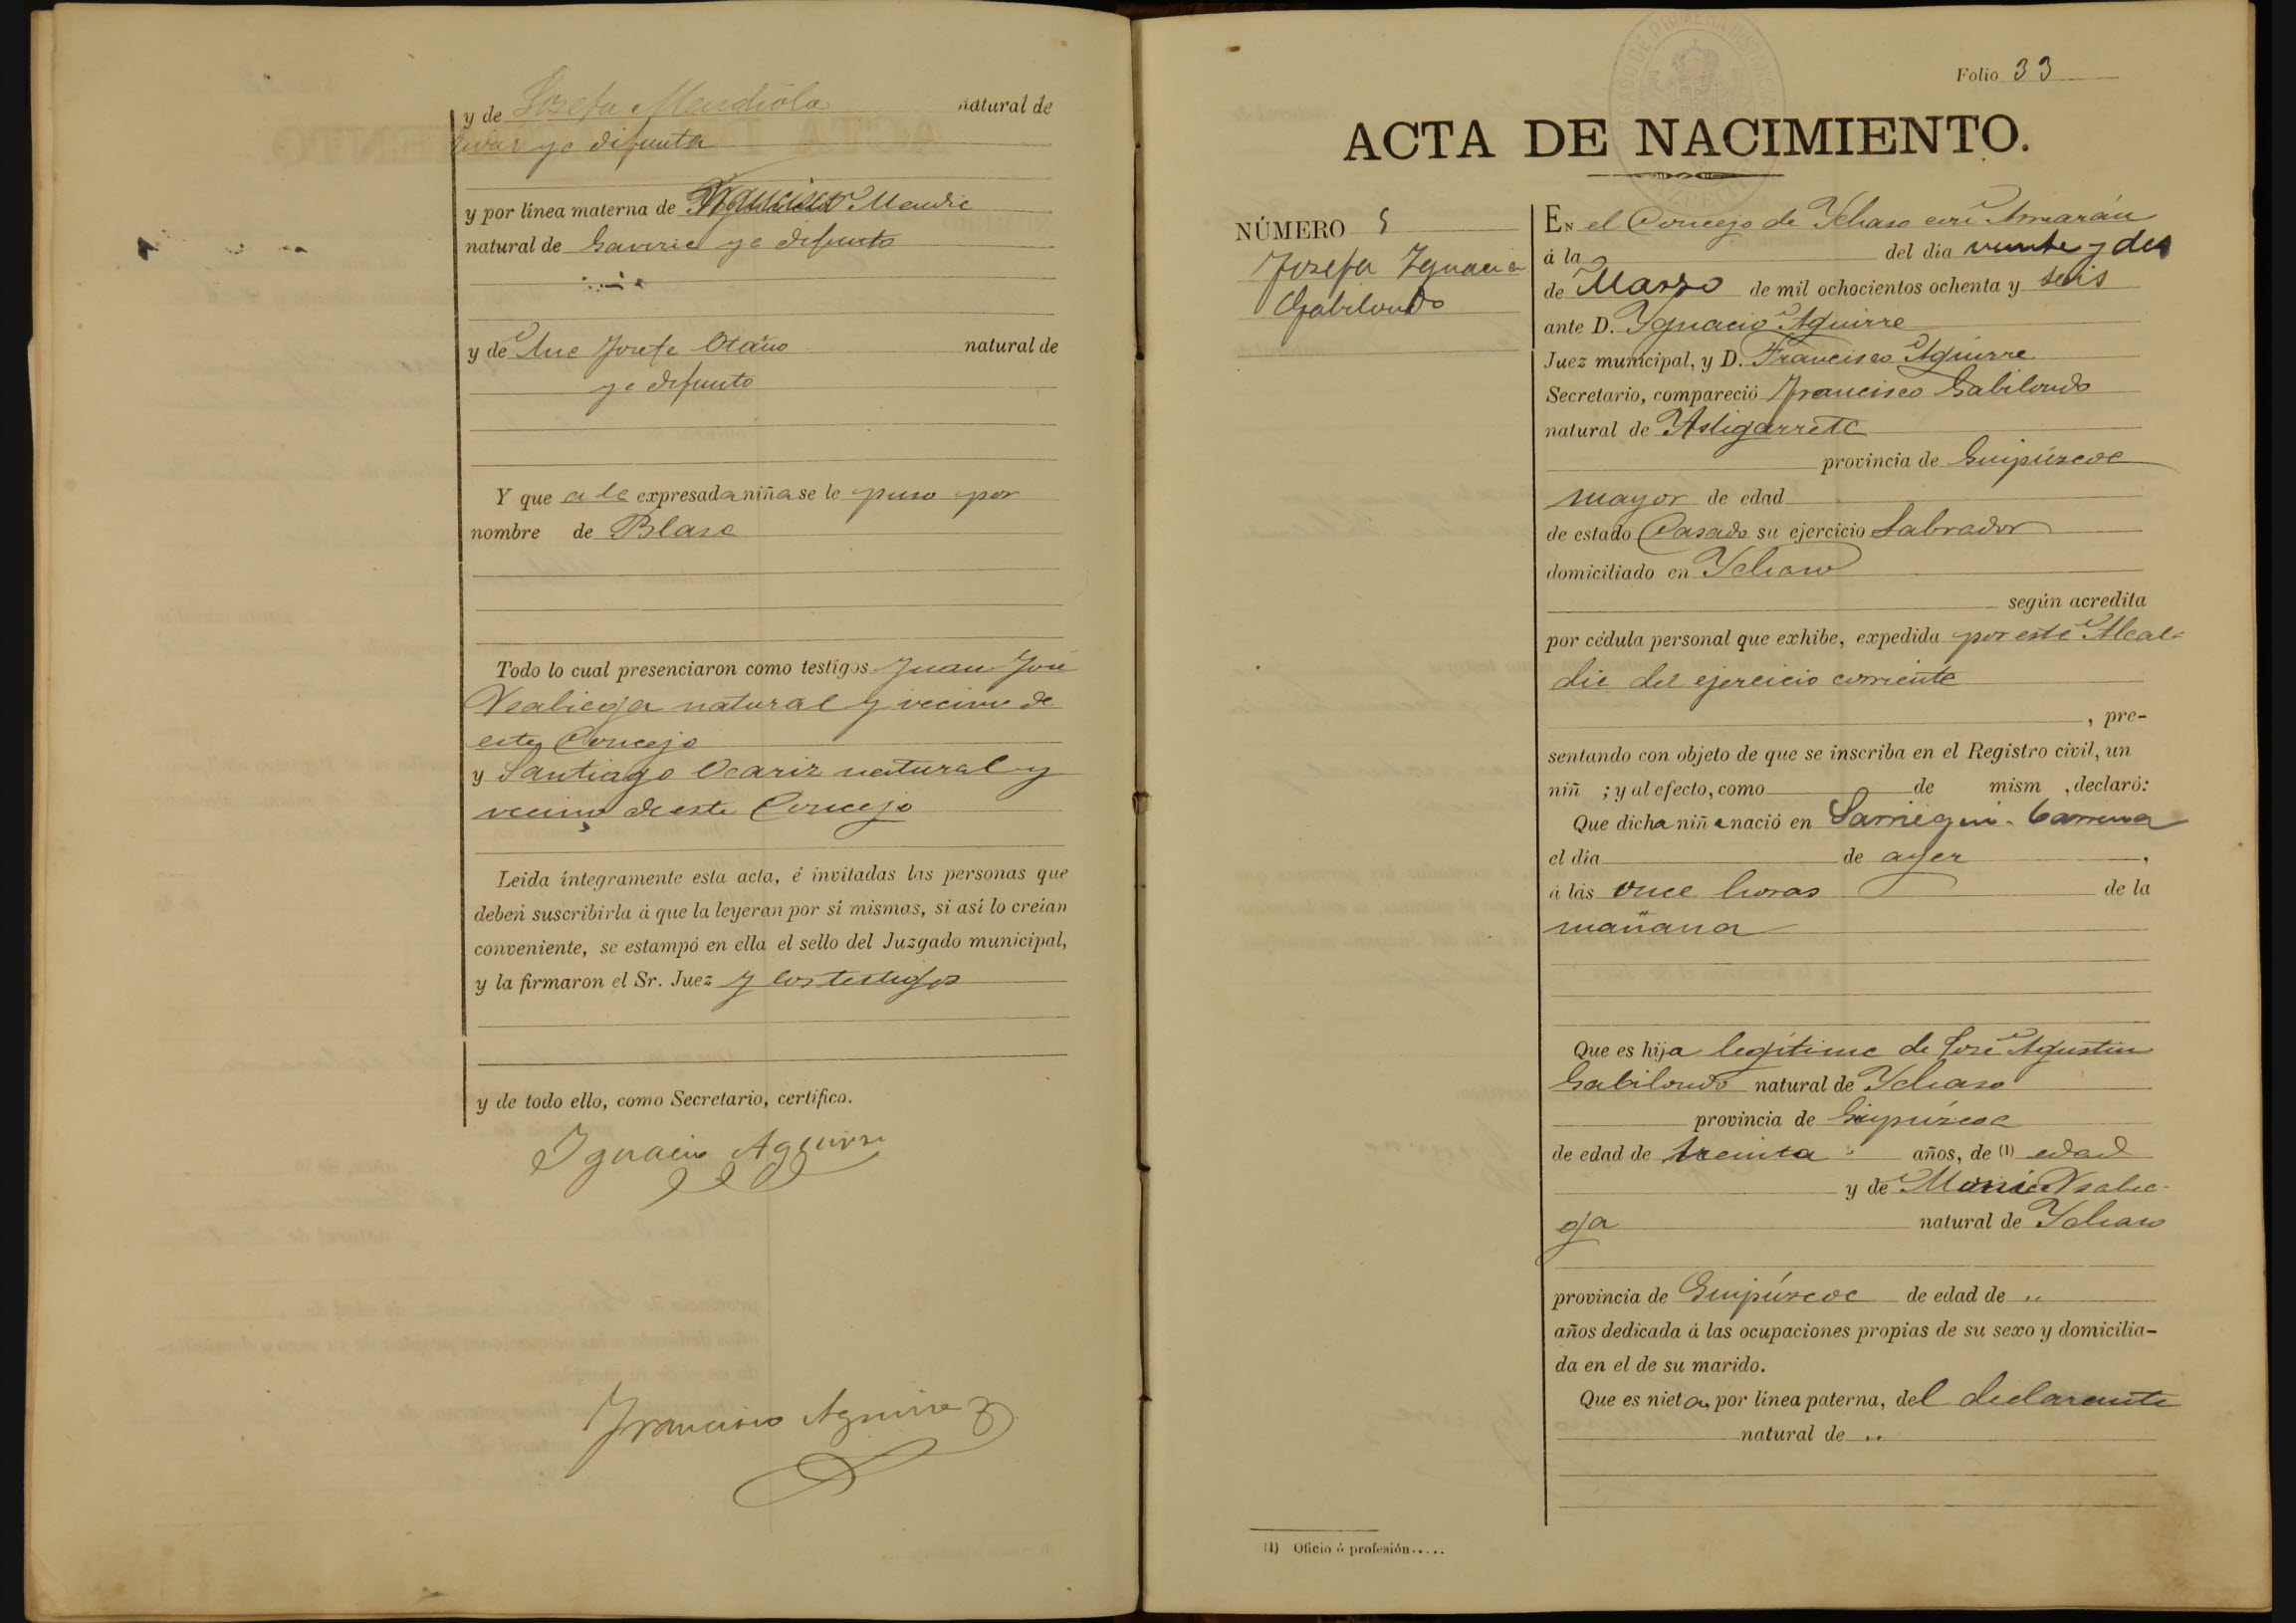 y de Josefa Mendiola natural de
ya difunta
y por línea materna de Francisco
natural de Gaviria ya difunto
y de Ana Josefa Otaño natural de
ya difunto
Y que a la expresada niña se le puso por
nombre de Blasa
Todo lo cual presenciaron como testigos Juan José
natural y vecino de
este Concejo
y Santiago Ocariz natural y
vecino de este Concejo
Leida íntegramente esta acta, é invitadas las personas que
deben suscribirla á que la leyeran por sí mismas, si así lo creían
conveniente, se estampó en ella el sello del Juzgado municipal,
y la firmaron el Sr. Juez y los testigos
y de todo ello, como Secretario, certifico.
Ignacio Aguirre
Francisco Aguirre
Folio 33
ACTA DE NACIMIENTO.
NÚMERO 5
Josefa Ygnacia
Gabilondo
EN el Concejo de Ychaso
á la del dia veinte y dos
de Marzo de mil ochocientos ochenta y seis
ante D. Ygnacio Aguirre
Juez municipal, y D. Francisco Aguirre
Secretario, compareció Francisco Gabilondo
natural de Astigarreta
provincia de Guipúzcoa
mayor de edad
de estado Casado su ejercicio Labrador
domiciliado en Ychaso
según acredita
por cédula personal que exhibe, expedida por esta Alcal-
dia del ejercicio corriente
, pre-
sentando con objeto de que se inscriba en el Registro civil, un
niñ ; y al efecto, como de mism , declaró:
Que dicha niña nació en
el día de ayer ,
á las once horas de la
mañana
Que es hija legitima de José Agustin
Gabilondo natural de Ychaso
provincia de Guipúzcoa
de edad de treinta años, de (1) edad
y de
natural de Ychaso
provincia de Guipúzcoa de edad de ..
años dedicada á las ocupaciones propias de su sexo y domicilia-
da en el de su marido.
Que es nieta, por línea paterna, del declarante
natural de ..
(1) Oficio ó profesión.....